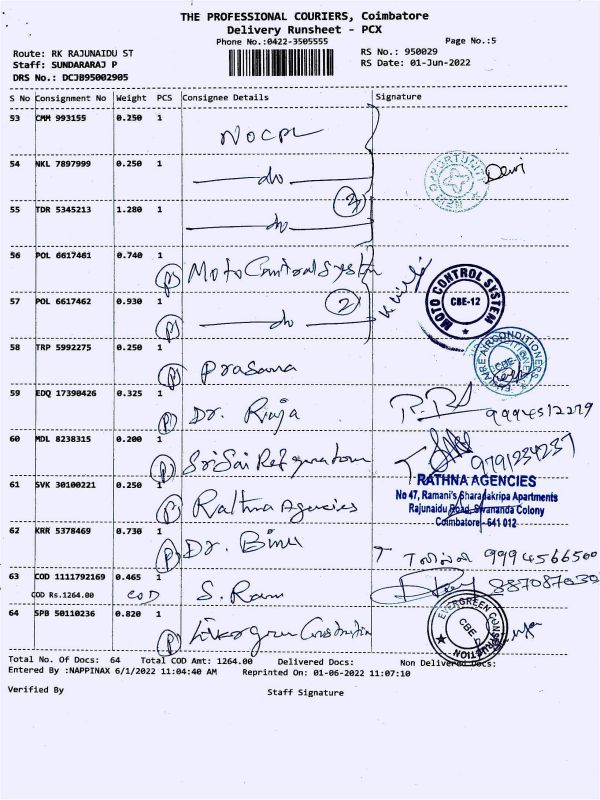 THE PROFESSIONAL COURIERS, Coimbatore
Delivery Runsheet - PCX
Phone No.:0422-3505555
Page No.:5
Route: RK RAJUNAIDU ST
RS No.: 950029
Staff: SUNDARARAJ P
RS Date: 01-Jun-2022
DRS No.: DCJB95002905
S No Consignment No Weight PCS Consignee Details Signature
53 CMM 993155 0.250 1 NOCPL
54 NKL 7897999 0.250 1 do Devi
55 TDR 5345213 1.280 1 do 3
56 POL 6617461 0.740 1 P Moto Control System
MOTO CONTROL SYSTEM CBE-12
57 POL 6617462 0.930 1 P do 2
58 TRP 5992275 0.250 1 P Prasana
AIRCONDITIONERS
59 EDQ 17390426 0.325 1 P Dr. Raja 9994512279
60 MDL 8238315 0.200 1 P Sri Sai Refrigeration 9791234237
61 SVK 30100221 0.250 1 P Rathna Agencies
RATHNA AGENCIES
No 47, Ramani's Sharadakripa Apartments
Rajunaidu Road, Sivananda Colony
Coimbatore - 641 012
62 KRR 5378469 0.730 1 P Dr. Binu 9994566500
63 COD 1111792169 0.465 1 S. Ram
COD Rs.1264.00 COD
64 SPB 50110236 0.820 1 P Evergreen Construction
EVERGREEN CONSTRUCTION CBE
Total No. Of Docs: 64 Total COD Amt: 1264.00 Delivered Docs: Non Delivered Docs:
Entered By :NAPPINAX 6/1/2022 11:04:40 AM Reprinted On: 01-06-2022 11:07:10
Verified By Staff Signature